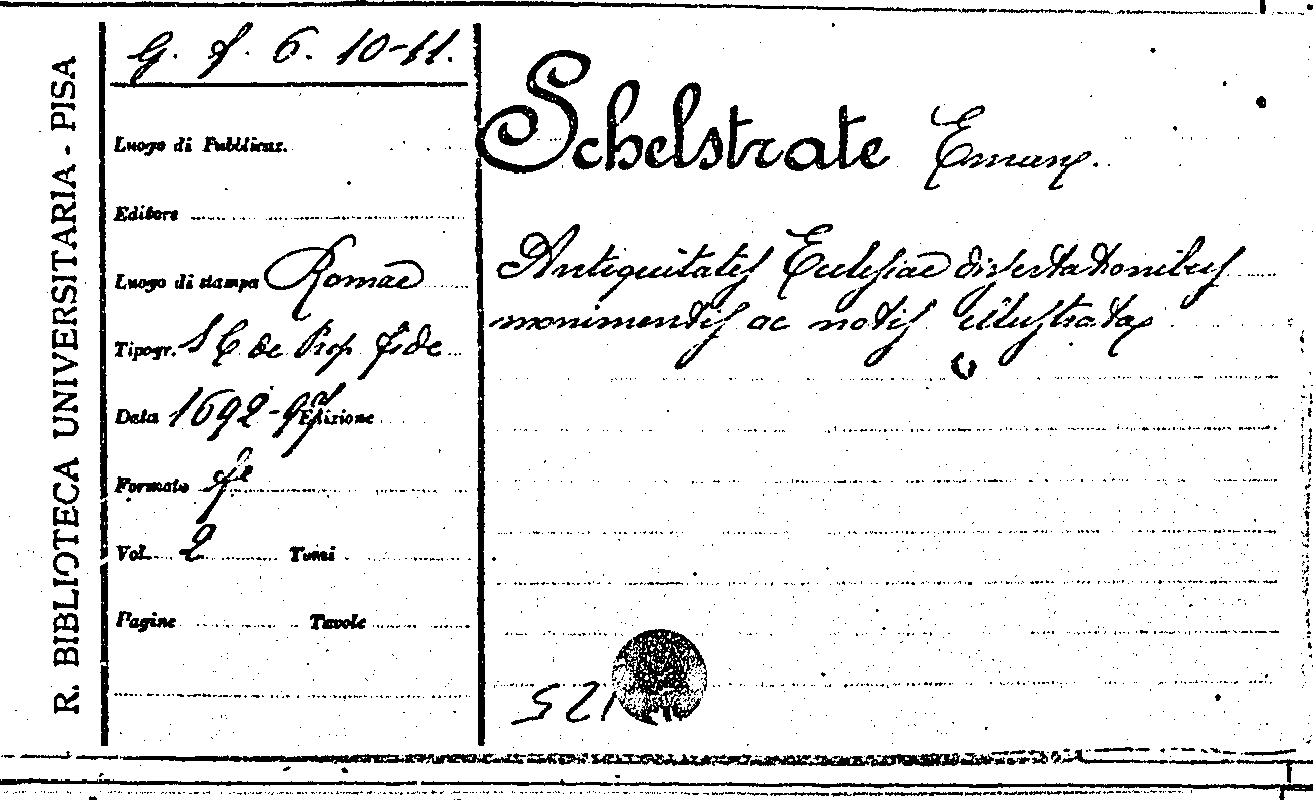 R. BIBLIOTECA UNIVERSITARIA - PISA
G. f. 6. 10-11.
Luogo di Pubblicaz.
Editore
Luogo di stampa Romae
Tipogr. S C de Prop fide
Data 1692-97 Edizione
Formato fº
Vol. 2 Tomi
Pagine Tavole
Schelstrate Eman.
Antiquitates Ecclesiae dissertationibus
monimentis ac notis illustratae
521